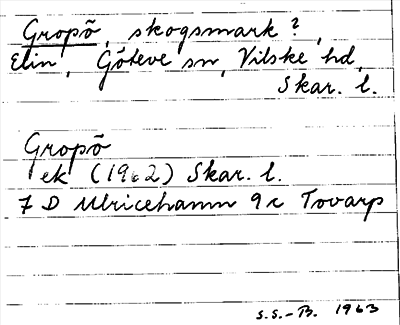 Gropö, skogsmark?,
Elin, Göteve sn, Vilske hd,
Skar. l.
Gropö
ek (1962) Skar. l.
7 D Ulricehamn 9 c Tovarp
S.S.-B. 1963